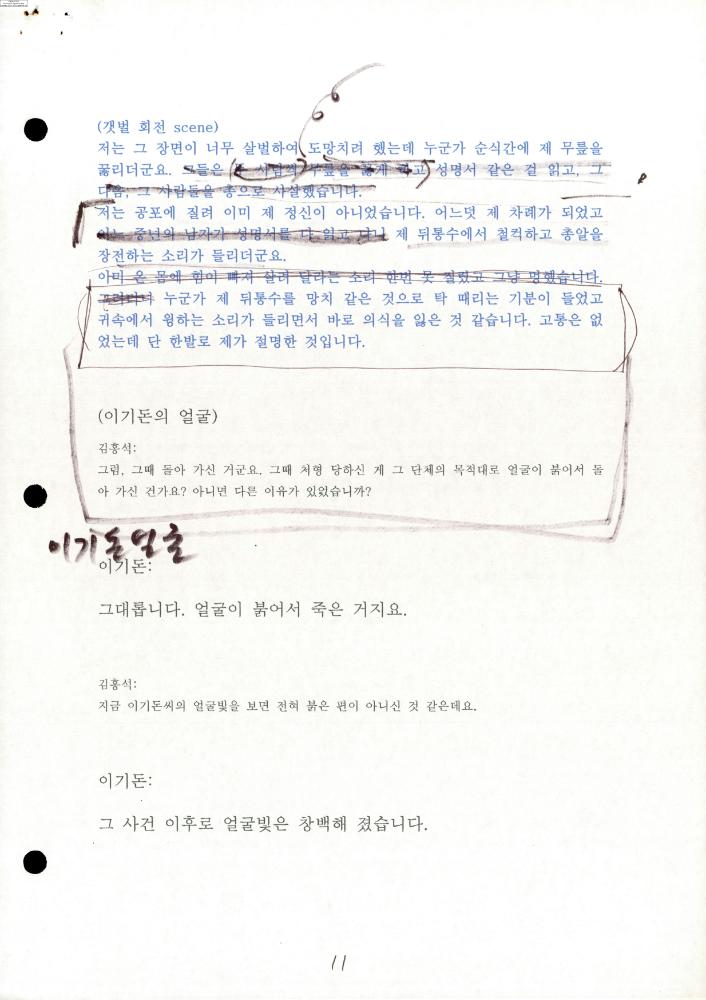 (갯벌 회전 scene)
저는 그 장면이 너무 살벌하여 도망치려 했는데 누군가 순식간에 제 무릎을
꿇리더군요. 그들은 무릎을 꿇게 하고 성명서 같은 걸 읽고, 그
다음, 그 사람들을 총으로 사살했습니다.
저는 공포에 질려 이미 제 정신이 아니었습니다. 어느덧 제 차례가 되었고
어느 중년의 남자가 성명서를 다 읽고 나니 제 뒤통수에서 철컥하고 총알을
장전하는 소리가 들리더군요.
온 몸에 힘이 빠져 살려 달라는 소리 한번 못 질렀고 그냥 멍했습니다.
그러더니 누군가 제 뒤통수를 망치 같은 것으로 탁 때리는 기분이 들었고
귀속에서 윙하는 소리가 들리면서 바로 의식을 잃은 것 같습니다. 고통은 없
었는데 단 한발로 제가 절명한 것입니다.
(이기돈의 얼굴)
김홍석:
그럼, 그때 돌아 가신 거군요. 그때 처형 당하신 게 그 단체의 목적대로 얼굴이 붉어서 돌
아 가신 건가요? 아니면 다른 이유가 있었습니까?
이기돈 얼굴
이기돈:
그대롭니다. 얼굴이 붉어서 죽은 거지요.
김홍석:
지금 이기돈씨의 얼굴빛을 보면 전혀 붉은 편이 아니신 것 같은데요.
이기돈:
그 사건 이후로 얼굴빛은 창백해 졌습니다.
11